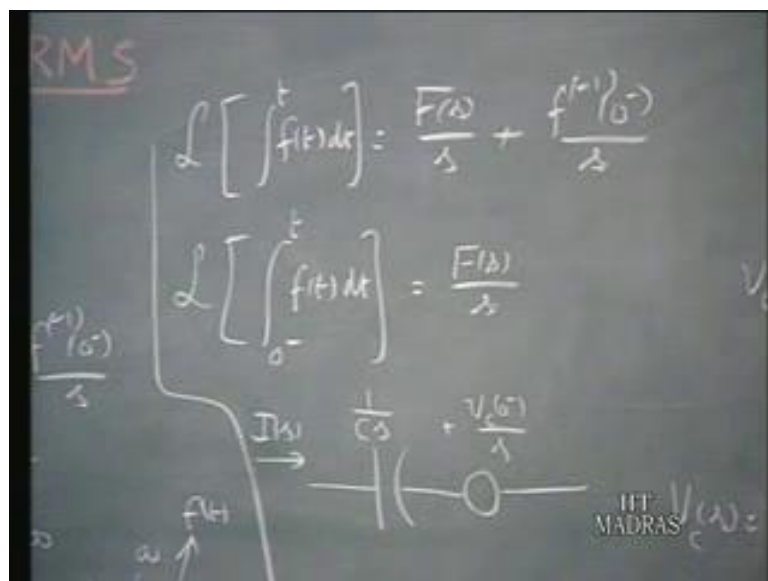 RMS
ℒ[∫^t f(t) dt] = F(s)/s + f^(-1)(0^-)/s
ℒ[∫_{0^-}^t f(t) dt] = F(s)/s
f^(-1)(0^-)/s
I(s) → 1/Cs + V_c(0^-)/s
f(t)
IIT
MADRAS
V_c(s) =